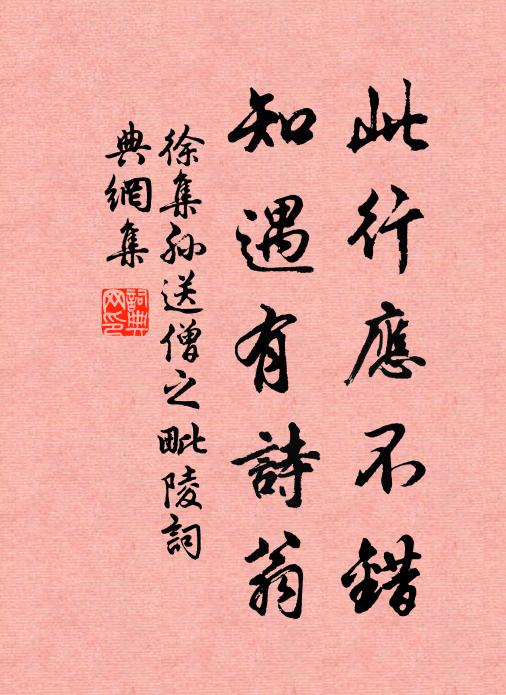 此行應不錯
知遇有詩翁
徐集孫送僧之毗陵詞
典網集
詞典網印